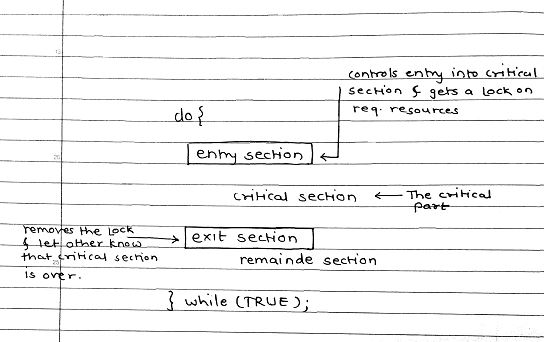 controls entry into critical
section & gets a lock on
req. resources
do {
entry section
critical section ← The critical
part
removes the lock
& let other know
that critical section
is over.
exit section
remainde section
} while (TRUE);